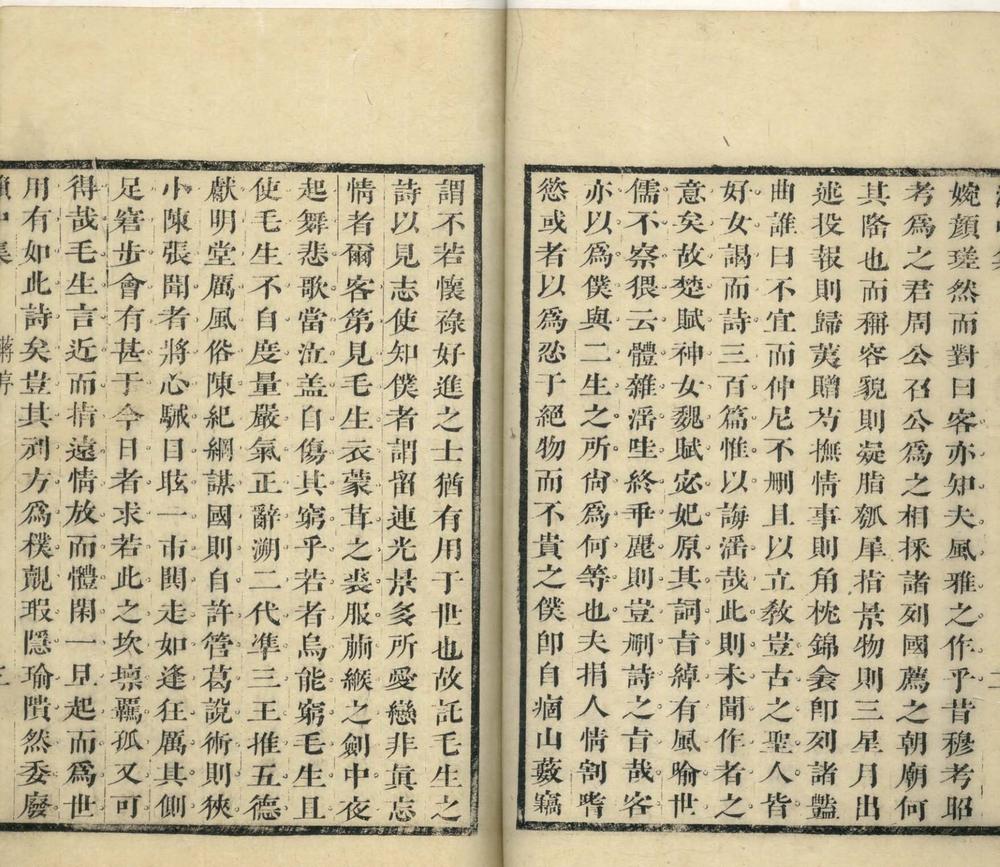 婉顏瑳然而對曰客亦知夫風雅之作乎昔穆考昭
考爲之君周公召公爲之相採諸列國薦之朝廟何
其隆也而稱容貌則凝脂瓠犀指景物則三星月出
述投報則歸荑贈芍撫情事則角枕錦衾卽列諸豔
曲誰曰不宜而仲尼不刪且以立敎豈古之聖人皆
好女謁而詩三百篇惟以誨滛哉此則未聞作者之
意矣故楚賦神女魏賦宓妃原其詞㫖綽有風喻世
儒不察猥云體雜滛哇終乖麗則豈刪詩之㫖哉客
亦以爲僕與二生之所尙爲何等也夫捐人情割嗜
慾或者以爲忍于絕物而不貴之僕卽自痼山藪竊
謂不若懷祿好進之士猶有用于世也故託毛生之
詩以見志使知僕者謂留連光景多所愛戀非眞忘
情者爾客第見毛生衣蒙茸之裘服蒯緱之劍中夜
起舞悲歌當泣盖自傷其窮乎若者烏能窮毛生且
使毛生不自度量嚴氣正辭溯二代準三王推五德
獻明堂厲風俗陳紀綱謀國則自許管葛說術則狹
小陳張聞者將心駴目眩一市鬨走如逢狂厲其側
足窘步會有甚于今日者求若此之坎壈羈孤又可
得哉毛生言近而指遠情放而體閑一見起而爲世
用有如此詩矣豈其刓方爲樸覿瑕隱瑜隤然委廢